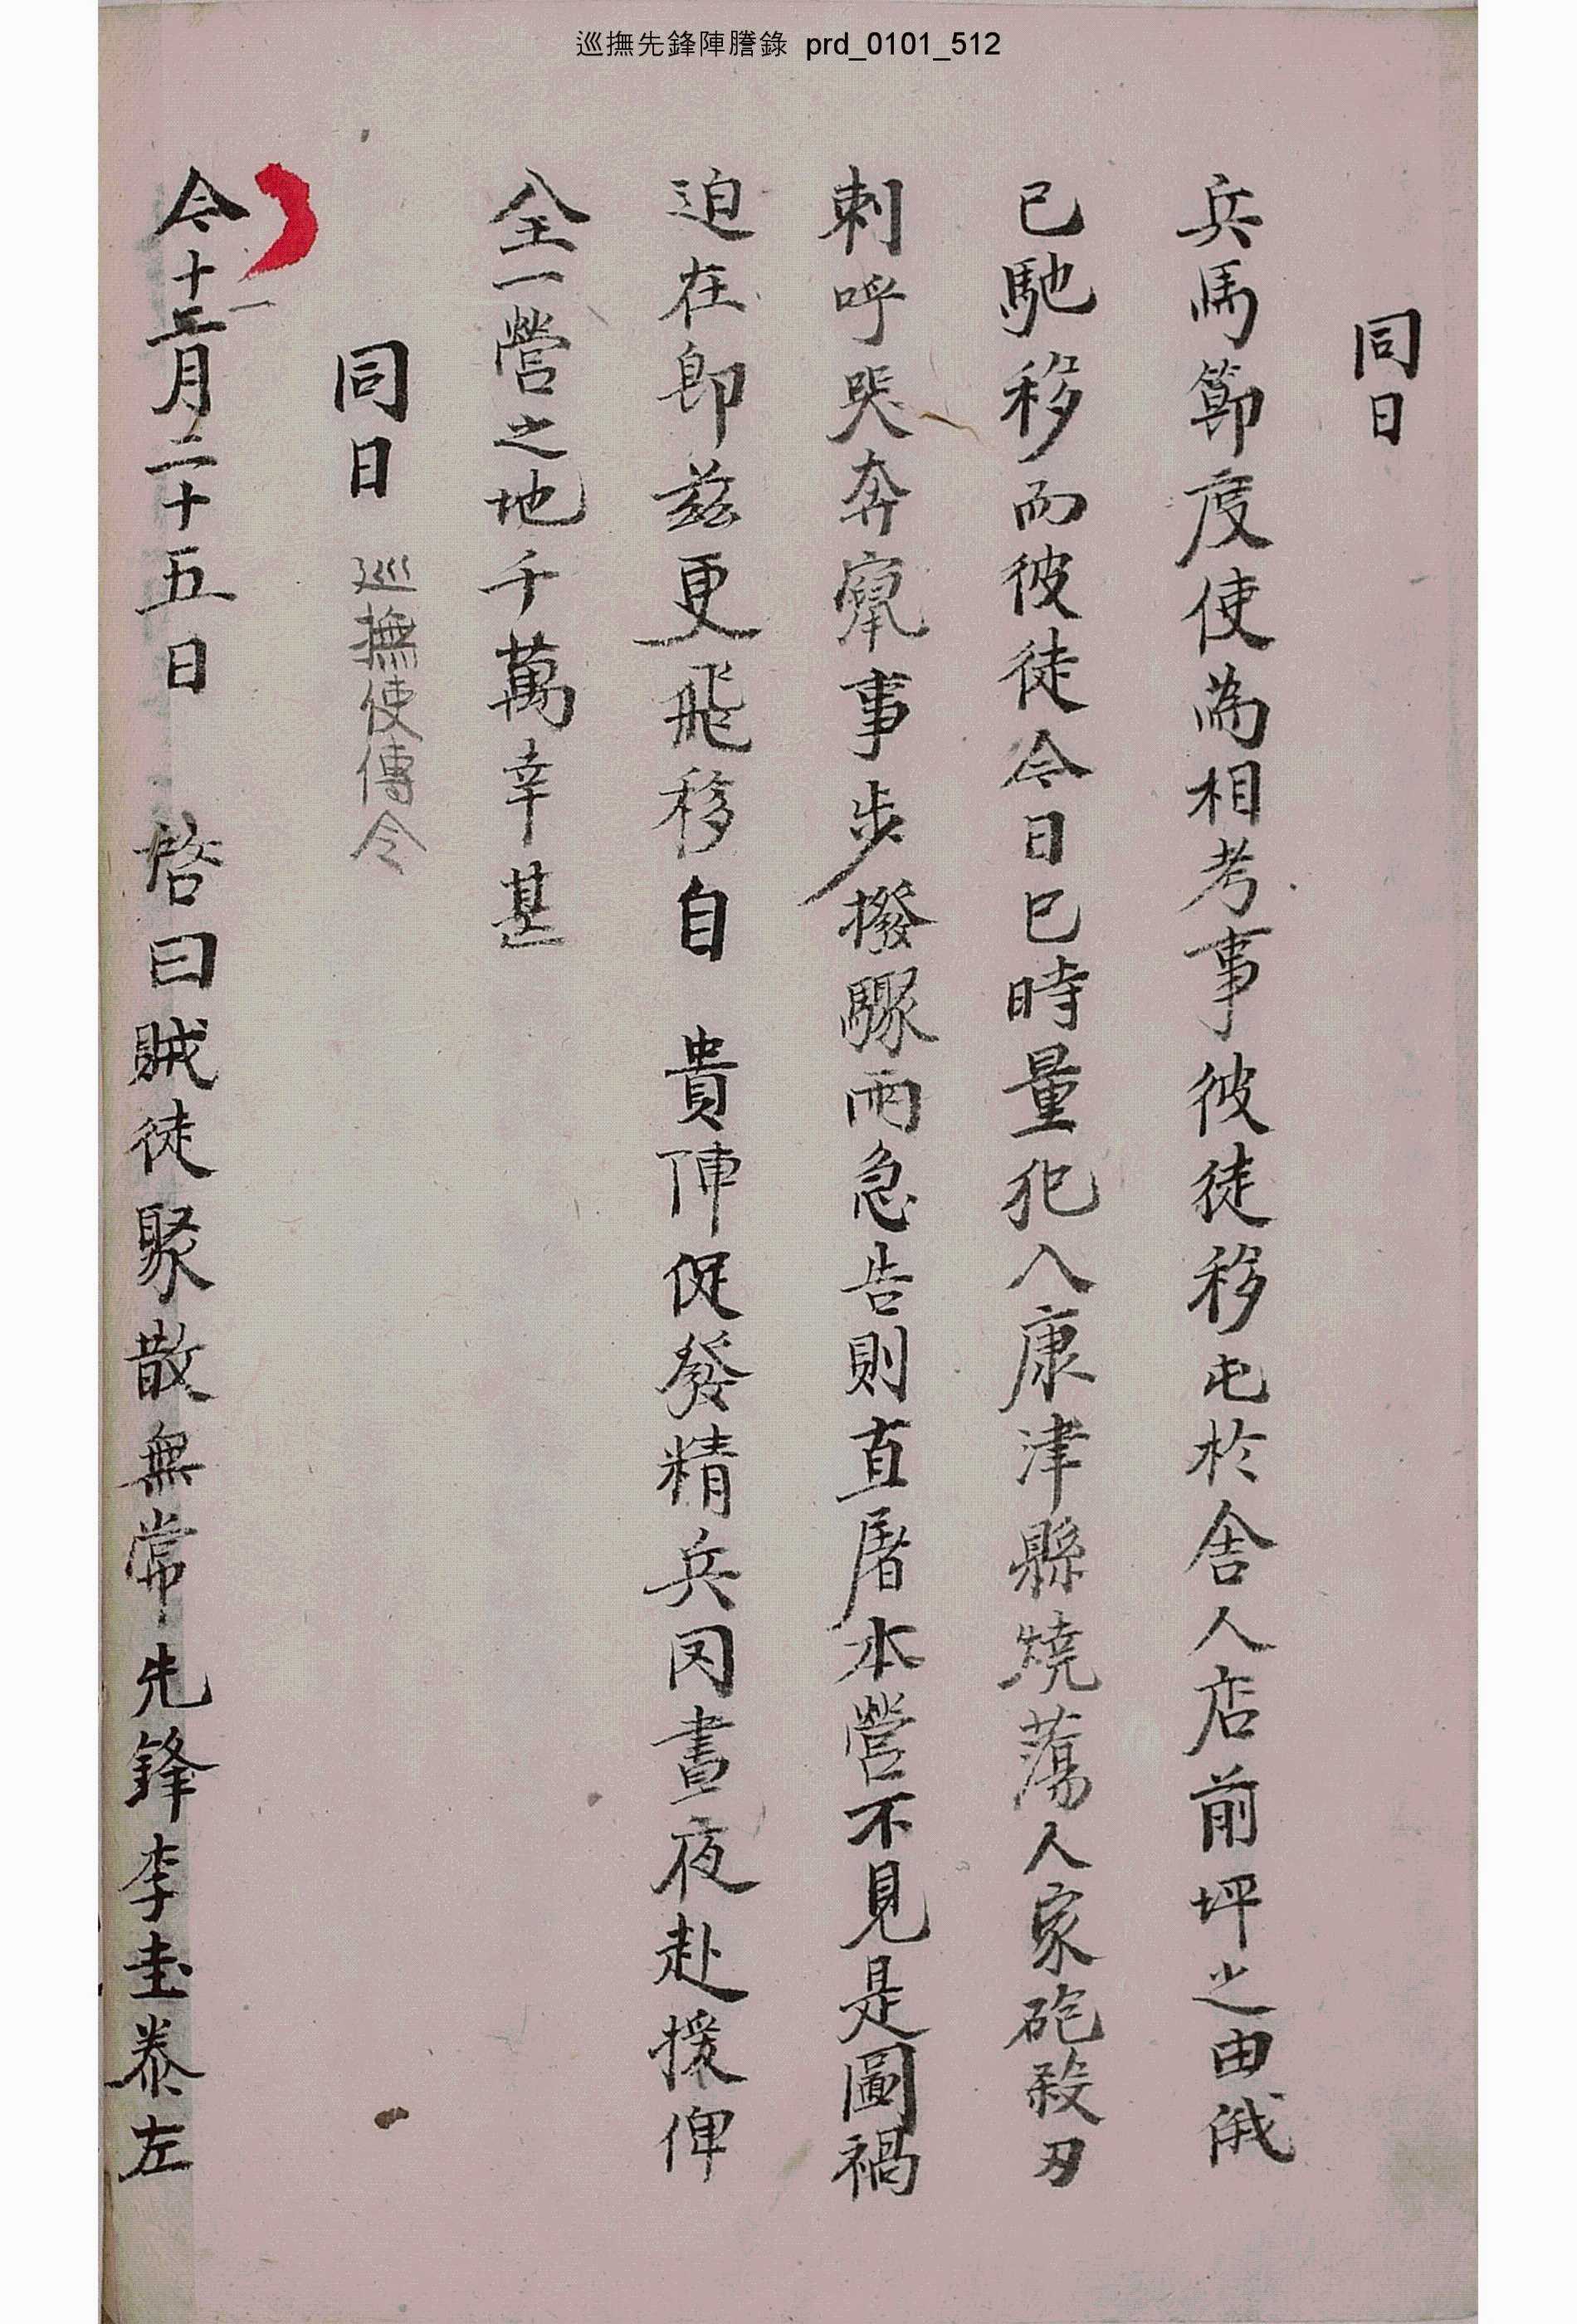 巡撫先鋒陣謄錄 prd_0101_512
同日
兵馬節度使為相考事彼徒移屯於舍人店前坪之由俄
已馳移而彼徒今日巳時量犯入康津縣燒蕩人家砲殺刃
刺呼哭奔竄事步撥驟雨急告則直屠本營不見是圖禍
迫在即玆更飛移自 貴陣促發精兵罔晝夜赴援俾
全一營之地千萬幸甚
同日 巡撫使傳令
今十二月二十五日 啓曰賊徒聚散無常先鋒李圭泰左